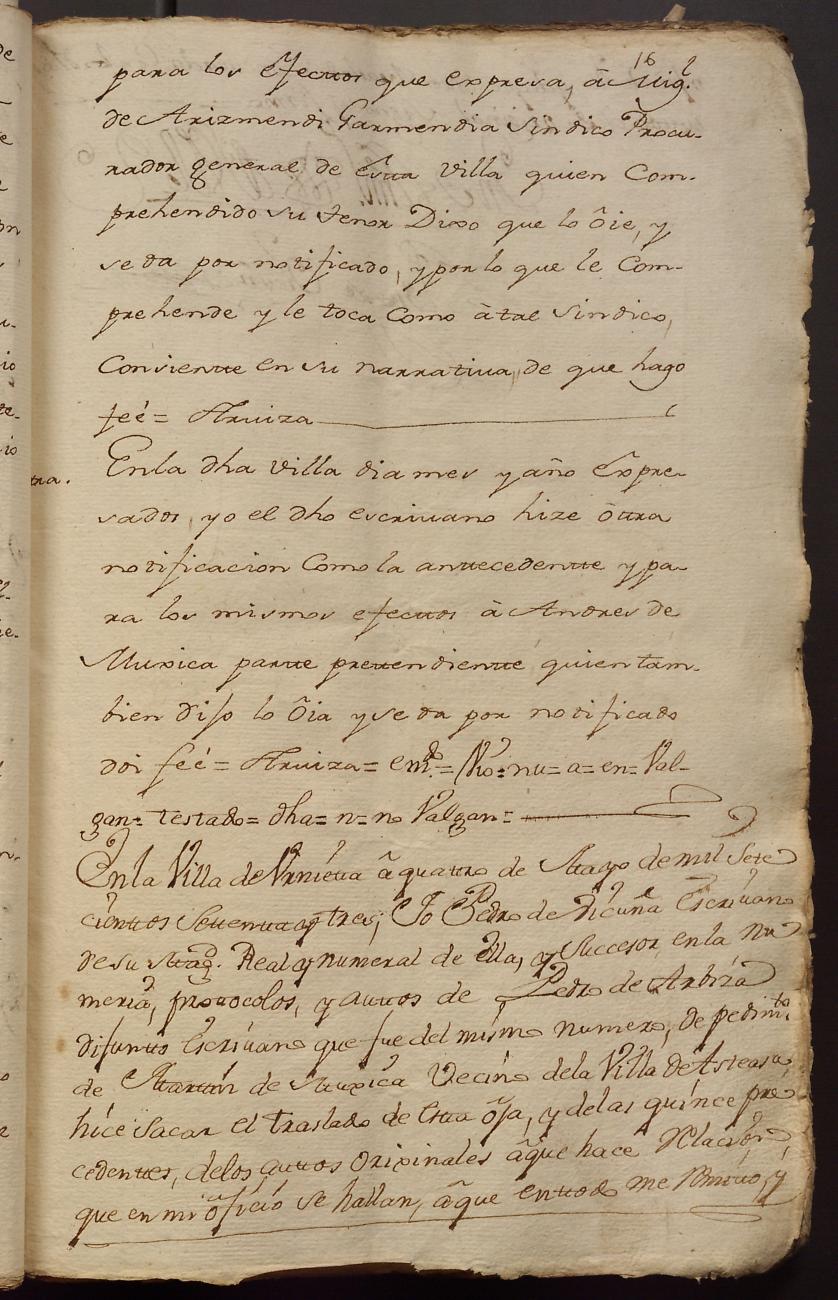 16
para los efectos que expresa, â Migl.
de Arizmendi Garmendia Sindico Procu-
rador general de êsta villa quien Com-
prehendido su tenor Dixo que lo ôie, y
se da por notificado, y por lo que le Com-
prehende y le toca Como â tal Sindico,
Consiente en su narrativa, de que hago
feé = Arviza
En la dha villa dia mes y año êxpre-
sados, yo el dho escrivano hize ôtra
notificacion Como la antecedente y pa-
ra los mismos efectos â Andres de
Muxica parte pretendiente, quien tam-
bien dijo lo ôia y se da por notificado
doi feé = Arviza = emdo. = = nu = a = en = Val-
gan = testado = dha = n = no Valgan =
En la Villa de Vrnieta â quatro de Mayo de mil Sete
cientos Setenta y tres; Yo Pedro de Vicuña Escrivano
de su Magd. Real y numeral de ella, y Successor en la Nu
meria, protocolos, y autos de Pedro de Arbiza
difunto Escrivano que fue del mismo numero, de pedimto.
de Martin de Muxica Vecino de la Villa de Asteasu,
hice Sacar el traslado de esta ôja, y de las quince pre
cedentes, de los autos Orixinales âque hace Relacion,
que en mi ôficio se hallan, âque en todo me Remito, y